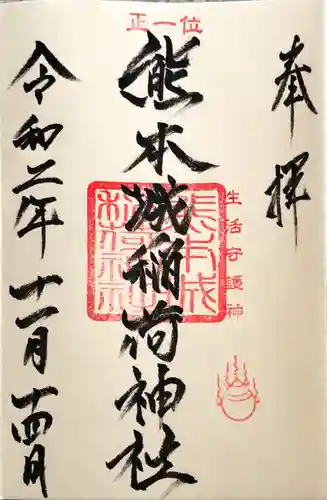 奉拝
正一位
熊本城稲荷神社
生活守護神
熊本城稲荷神社
令和二年十一月十四日